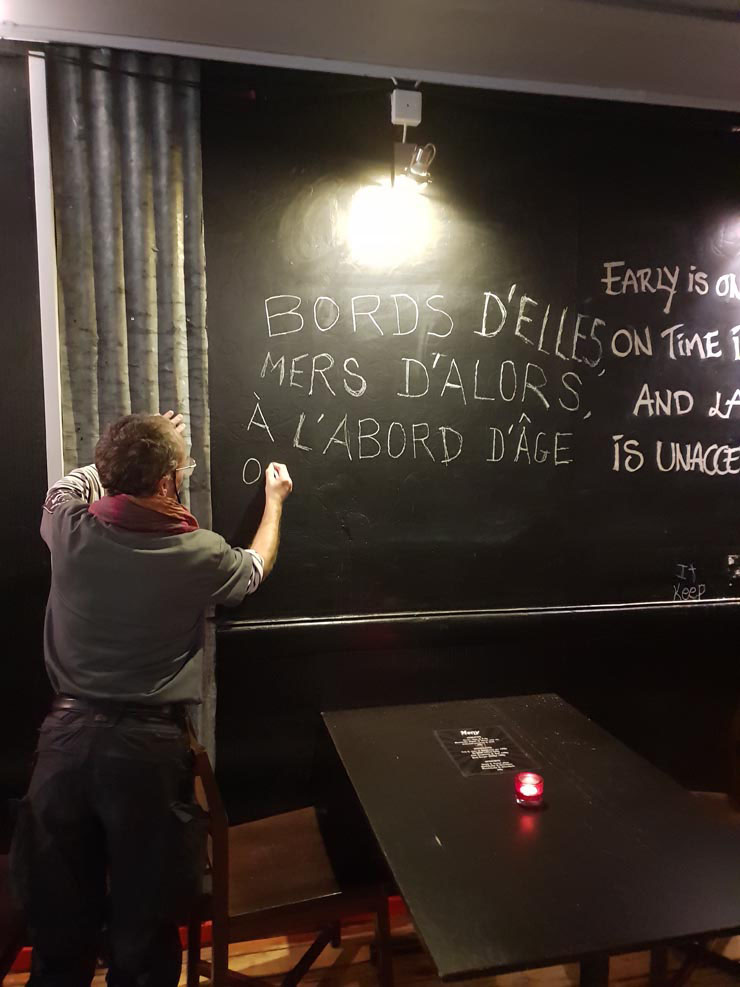 BORDS D'ELLES,
MERS D'ALORS,
À L'ABORD D'ÂGE
O
EARLY IS ON
ON TIME
AND LA
IS UNACCE
It
Keep
Menu